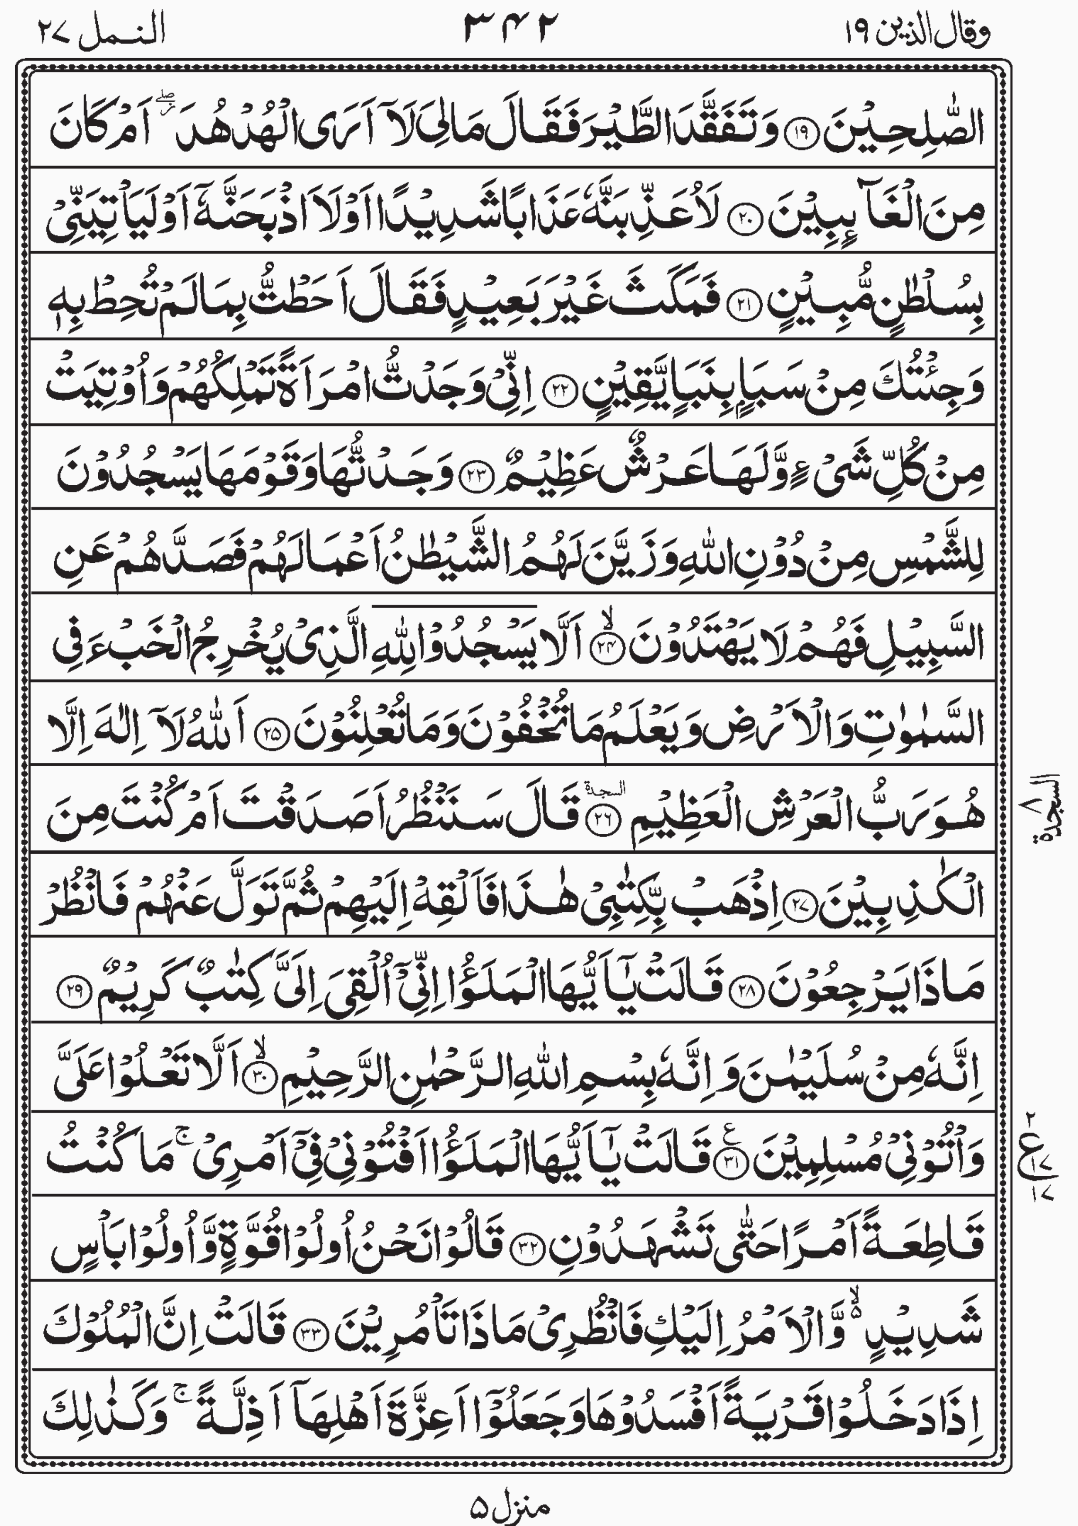 وقال الذين ١٩
٣٤٢
النمل ٢٧
الصّٰلِحِيْنَ ﴿١٩﴾ وَتَفَقَّدَ الطَّيْرَ فَقَالَ مَالِيَ لَآ اَرَى الْهُدْهُدَ ۖ اَمْ كَانَ
مِنَ الْغَآىِٕبِيْنَ ﴿٢٠﴾ لَاُعَذِّبَنَّهٗ عَذَابًا شَدِيْدًا اَوْ لَا۟اَذْبَحَنَّهٗٓ اَوْ لَيَاْتِيَنِّيْ
بِسُلْطٰنٍ مُّبِيْنٍ ﴿٢١﴾ فَمَكَثَ غَيْرَ بَعِيْدٍ فَقَالَ اَحَطْتُّ بِمَا لَمْ تُحِطْ بِهٖ
وَجِئْتُكَ مِنْ سَبَاٍۭ بِنَبَاٍ يَّقِيْنٍ ﴿٢٢﴾ اِنِّيْ وَجَدْتُّ امْرَاَةً تَمْلِكُهُمْ وَاُوْتِيَتْ
مِنْ كُلِّ شَيْءٍ وَّلَهَا عَرْشٌ عَظِيْمٌ ﴿٢٣﴾ وَجَدْتُّهَا وَقَوْمَهَا يَسْجُدُوْنَ
لِلشَّمْسِ مِنْ دُوْنِ اللّٰهِ وَزَيَّنَ لَهُمُ الشَّيْطٰنُ اَعْمَالَهُمْ فَصَدَّهُمْ عَنِ
السَّبِيْلِ فَهُمْ لَا يَهْتَدُوْنَ ﴿٢٤﴾ۙ اَلَّا يَسْجُدُوْا لِلّٰهِ الَّذِيْ يُخْرِجُ الْخَبْءَ فِي
السَّمٰوٰتِ وَالْاَرْضِ وَيَعْلَمُ مَا تُخْفُوْنَ وَمَا تُعْلِنُوْنَ ﴿٢٥﴾ اَللّٰهُ لَآ اِلٰهَ اِلَّا
هُوَ رَبُّ الْعَرْشِ الْعَظِيْمِ ﴿٢٦﴾ السجدة قَالَ سَنَنْظُرُ اَصَدَقْتَ اَمْ كُنْتَ مِنَ
السجدة ٨
الْكٰذِبِيْنَ ﴿٢٧﴾ اِذْهَبْ بِّكِتٰبِيْ هٰذَا فَاَلْقِهْ اِلَيْهِمْ ثُمَّ تَوَلَّ عَنْهُمْ فَانْظُرْ
مَاذَا يَرْجِعُوْنَ ﴿٢٨﴾ قَالَتْ يٰٓاَيُّهَا الْمَلَؤُا اِنِّيْٓ اُلْقِيَ اِلَيَّ كِتٰبٌ كَرِيْمٌ ﴿٢٩﴾
اِنَّهٗ مِنْ سُلَيْمٰنَ وَاِنَّهٗ بِسْمِ اللّٰهِ الرَّحْمٰنِ الرَّحِيْمِ ﴿٣٠﴾ۙ اَلَّا تَعْلُوْا عَلَيَّ
وَاْتُوْنِيْ مُسْلِمِيْنَ ﴿٣١﴾ ع قَالَتْ يٰٓاَيُّهَا الْمَلَؤُا اَفْتُوْنِيْ فِيْٓ اَمْرِيْ ۚ مَا كُنْتُ
٢ ع ١٧ ١٧
قَاطِعَةً اَمْرًا حَتّٰى تَشْهَدُوْنِ ﴿٣٢﴾ قَالُوْا نَحْنُ اُولُوْا قُوَّةٍ وَّاُولُوْا بَاْسٍ
شَدِيْدٍ ۙ۬ وَّالْاَمْرُ اِلَيْكِ فَانْظُرِيْ مَاذَا تَاْمُرِيْنَ ﴿٣٣﴾ قَالَتْ اِنَّ الْمُلُوْكَ
اِذَا دَخَلُوْا قَرْيَةً اَفْسَدُوْهَا وَجَعَلُوْٓا اَعِزَّةَ اَهْلِهَآ اَذِلَّةً ۚ وَكَذٰلِكَ
منزل ٥